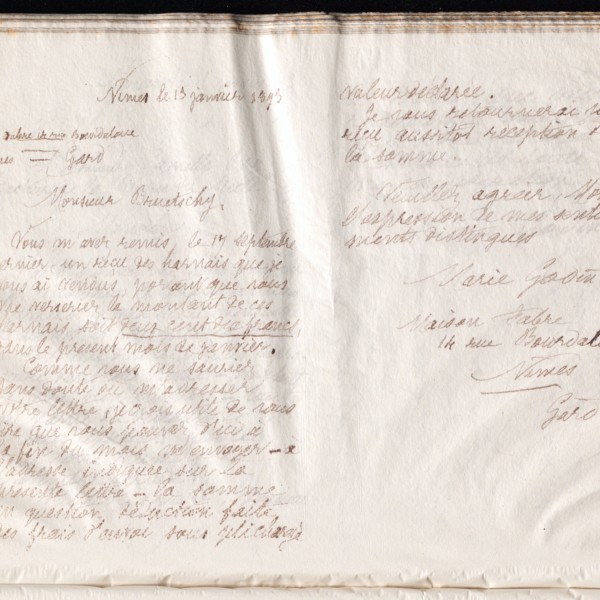 Nimes le 13 janvier 1893
Fabre 14 rue Bourdaloue
Gard
Monsieur Bruetschy,
Vous m'avez remis, le 17 septembre
dernier, un recu des harnais que je
vous ai vendus, portant que vous
me verseriez le montant de ces
harnais soit deux cent dix francs,
dans le présent mois de janvier.
Comme vous ne sauriez
sans doute où m'adresser
votre lettre, je crois utile de vous
dire que vous pouvez d'ici à
la fin du mois m'envoyer - à
l'adresse indiquée sur la
présente lettre - la somme
en question déduction faite
des frais d'envoi sous pli chargé
valeur déclarée.
Je vous retournerai
recu aussitot reception
la somme.
Veuillez agréer,
l'expression de mes senti
ments distingués
Marie Godin
Maison Fabre
14 rue Bourdal
Nimes
Gard